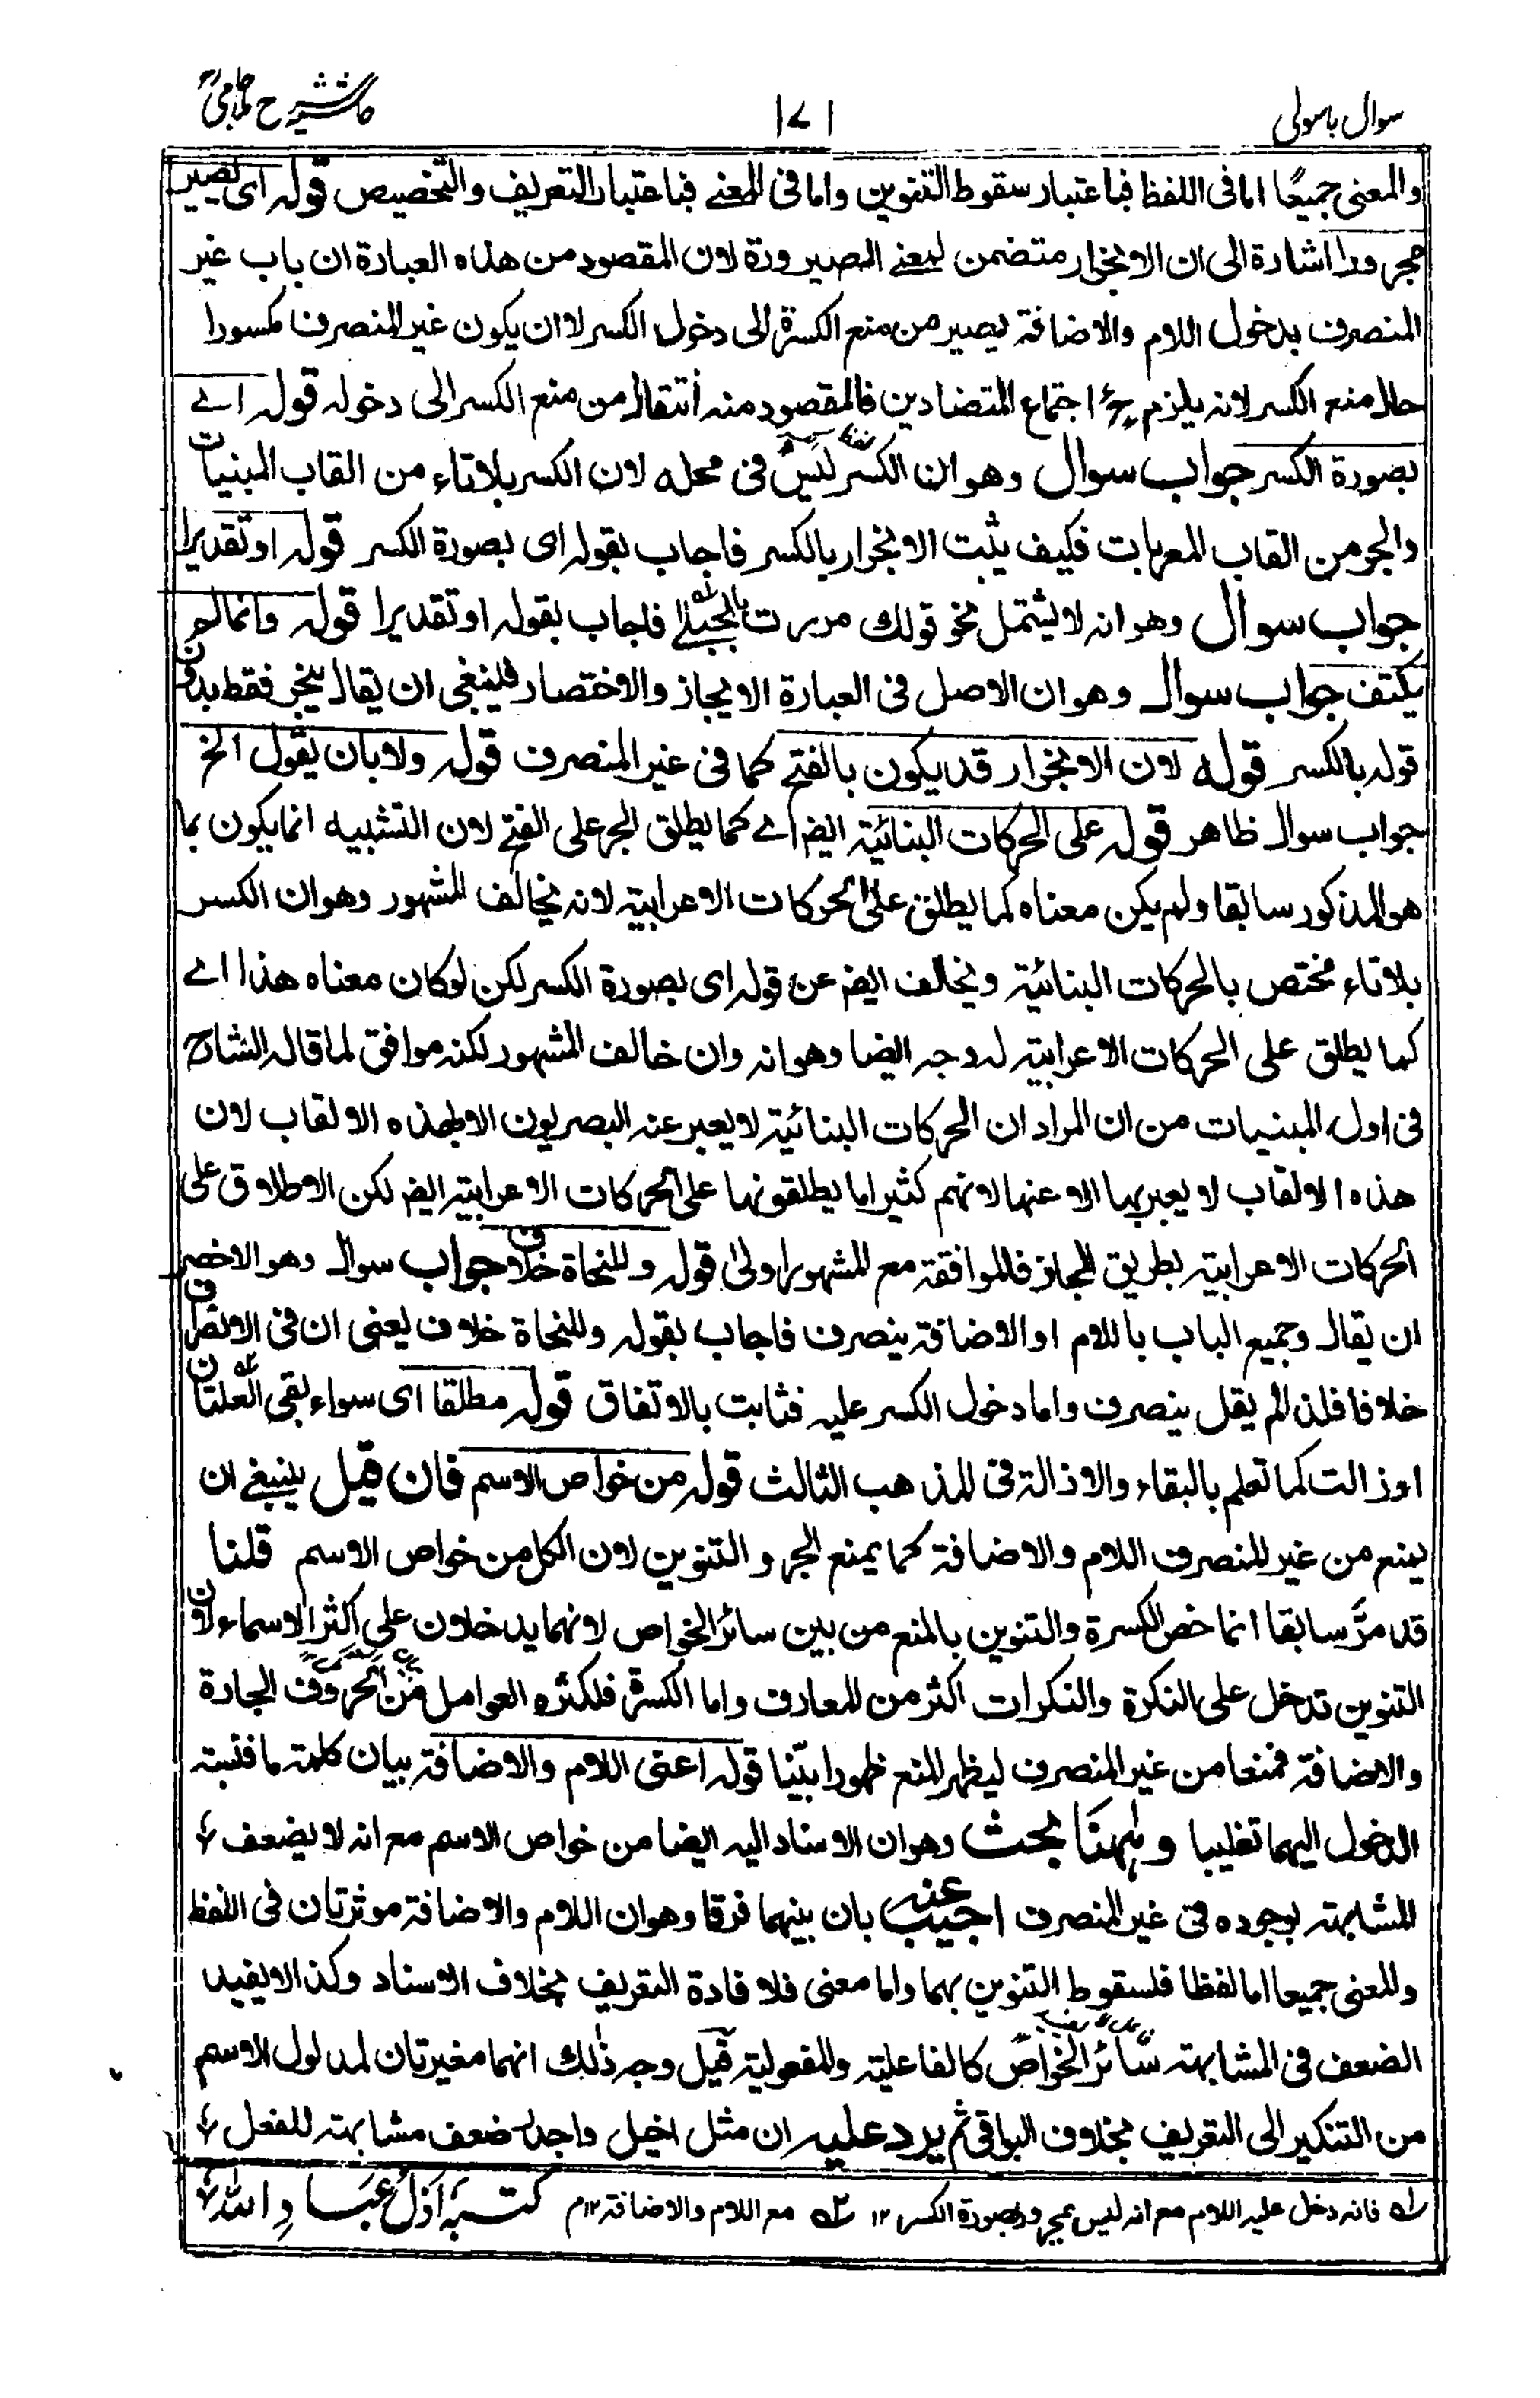 سوال باسولی
۱۷۱
حاشیہ شرح ملا جامی
والمعنی جمیعًا اما فی اللفظ فباعتبار سقوط التنوین واما فی المعنے فباعتبار التعریف والتخصیص قولہ ای یصیر
مجرورا اشارۃ الی ان الانجرار متضمن لمعنے الصیرورۃ لان المقصود من ھذہ العبارۃ ان باب غیر
المنصرف بدخول اللام والاضافۃ یصیر من منع الکسرۃ الی دخول الکسر لا ان یکون غیر المنصرف مکسورا
حال منع الکسر لانہ یلزم ح اجتماع المتضادین فالمقصود منہ انتقال من منع الکسر الی دخولہ قولہ اے
بصورۃ الکسر جواب سوال وھو ان الکسر لیس فی محلہ لان الکسر بلا تاء من القاب المبنیات
والجر من القاب المعربات فکیف یثبت الانجرار بالکسر فاجاب بقولہ ای بصورۃ الکسر قولہ او تقدیرا
جواب سوال وھو انہ لا یشتمل نحو قولک مررت بالحبلے فاجاب بقولہ او تقدیرا قولہ وانما لم
یکتف جواب سوال وھو ان الاصل فی العبارۃ الایجاز والاختصار فلینبغی ان یقال ینجر فقط بدون
قولہ بالکسر قولہ لان الانجرار قد یکون بالفتح کما فی غیر المنصرف قولہ ولا بان یقول الخ
جواب سوال ظاھر قولہ علی الحرکات البنائیۃ ایضا اے کما یطلق الجر علی الفتح لان التشبیہ انما یکون بما
ھو المذکور سابقا ولم یکن معناہ کما یطلق علی الحرکات الاعرابیۃ لانہ یخالف المشھور وھو ان الکسر
بلا تاء مختص بالحرکات البنائیۃ ویخالف ایضا عن قولہ ای بصورۃ الکسر لکن لو کان معناہ ھذا اے
کما یطلق علی الحرکات الاعرابیۃ لہ وجہ ایضا وھو انہ وان خالف المشھور لکنہ موافق لما قالہ الشارح
فی اول المبنیات من ان المراد ان الحرکات البنائیۃ لا یعبر عنہ البصریون الا بھذہ الالقاب لان
ھذہ الالقاب لا یعبر بھا الا عنھا لانھم کثیرا ما یطلقونھا علی الحرکات الاعرابیۃ ایضا لکن الاطلاق علی
الحرکات الاعرابیۃ بطریق المجاز فالموافقۃ مع المشھور اولیٰ قولہ وللنحاۃ خلاف جواب سوال وھو الاخصر
ان یقال وجمیع الباب باللام او الاضافۃ ینصرف فاجاب بقولہ وللنحاۃ خلاف یعنی ان فی الانصراف
خلافا فلذا لم یقل ینصرف واما دخول الکسر علیہ فثابت بالاتفاق قولہ مطلقا ای سواء بقی العلتان
او زالت کما تعلم بالبقاء والازالۃ فی المذھب الثالث قولہ من خواص الاسم فان قیل ینبغے ان
یمنع من غیر المنصرف اللام والاضافۃ کما یمنع الجر والتنوین لان الکل من خواص الاسم قلنا
قد مرَّ سابقا انما خص الکسرۃ والتنوین بالمنع من بین سائر الخواص لانھما یدخلان علی اکثر الاسماء لان
التنوین تدخل علی النکرۃ والنکرات اکثر من المعارف واما الکسرۃ فلکثرۃ العوامل من الحروف الجارۃ
والاضافۃ فمنعا من غیر المنصرف لیظھر المنع ظھورا بیّنا قولہ اعنی اللام والاضافۃ بیان کلمۃ ما فنسبۃ
الدخول الیھما تغلیبا وھٰھنَا بحث وھو ان الاسناد الیہ ایضا من خواص الاسم مع انہ لا یضعف
المشابھۃ بوجودہ فی غیر المنصرف اجیب عنہ بان بینھما فرقا وھو ان اللام والاضافۃ موثرتان فی اللفظ
والمعنی جمیعا اما لفظا فلسقوط التنوین بھما واما معنی فلافادۃ التعریف بخلاف الاسناد وکذا لا یفید
الضعف فی المشابھۃ سائر الخواص کالفاعلیۃ والمفعولیۃ قیل وجہ ذٰلک انھما مغیرتان لمدلول الاسم
من التنکیر الی التعریف بخلاف الباقی ثم یرد علیہ ان مثل اخیل واجدل ضعف مشابھتہ للفعل
لہ فانہ دخل علیہ اللام مع انہ لیس بمجرور بصورۃ الکسر ۱۲ ۲ہ مع اللام والاضافۃ ۱۲م کتبہ اذلُّ عبَادِ اللّٰہ